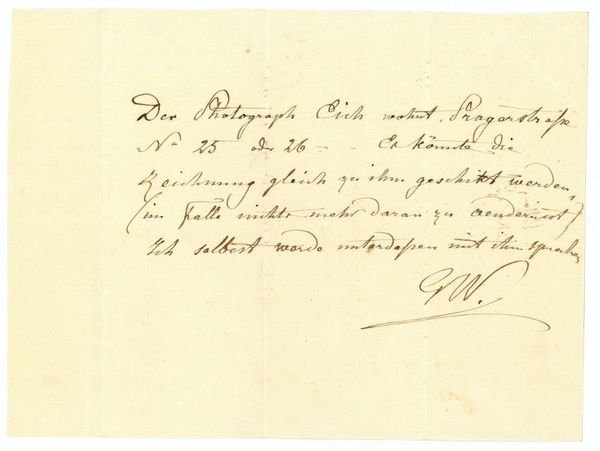 Der Photograph Eich wohnt Pragerstraße
No 25 oder 26 – – Es könnte die
Zeichnung gleich zu ihm geschikt werden,
(im Falle nichts mehr daran zu aendern ist)
Ich selbst werde unterdaßen mit ihm sprechen
GW.